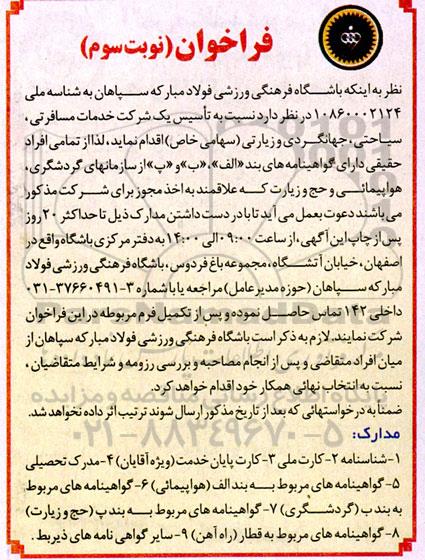 فراخوان (نوبت سوم)
نظر به اینکه باشگاه فرهنگی ورزشی فولاد مبارکه سپاهان به شناسه ملی
۱۰۸۶۰۰۰۲۱۲۴ در نظر دارد نسبت به تأسیس یک شرکت خدمات مسافرتی،
سیاحتی، جهانگردی و زیارتی (سهامی خاص) اقدام نماید، لذا از تمامی افراد
حقیقی دارای گواهینامه های بند «الف»، «ب» و «پ» از سازمانهای گردشگری،
هواپیمائی و حج و زیارت که علاقمند به اخذ مجوز برای شرکت مذکور
می باشند دعوت بعمل می آید تا با در دست داشتن مدارک ذیل تا حداکثر ۲۰ روز
پس از چاپ این آگهی، از ساعت ۰۹:۰۰ الی ۱۴:۰۰ به دفتر مرکزی باشگاه واقع در
اصفهان، خیابان آتشگاه، مجموعه باغ فردوس، باشگاه فرهنگی ورزشی فولاد
مبارکه سپاهان (حوزه مدیر عامل) مراجعه یا با شماره ۳-۳۷۶۶۰۴۹۱-۰۳۱
داخلی ۱۴۲ تماس حاصل نموده و پس از تکمیل فرم مربوطه در این فراخوان
شرکت نمایند. لازم به ذکر است باشگاه فرهنگی ورزشی فولاد مبارکه سپاهان از
میان افراد متقاضی و پس از انجام مصاحبه و بررسی رزومه و شرایط متقاضیان،
نسبت به انتخاب نهائی همکار خود اقدام خواهد کرد.
ضمناً به درخواستهائی که بعد از تاریخ مذکور ارسال شوند ترتیب اثر داده نخواهد شد.
مدارک:
۱-شناسنامه ۲-کارت ملی ۳-کارت پایان خدمت (ویژه آقایان) ۴-مدرک تحصیلی
۵-گواهینامه های مربوط به بند الف (هواپیمائی) ۶-گواهینامه های مربوط
به بند ب (گردشگری) ۷-گواهینامه های مربوط به بند پ (حج و زیارت)
۸-گواهینامه های مربوط به قطار (راه آهن) ۹-سایر گواهی نامه های ذیربط.
۰۲۱-۸۸۳۴۹۶۷۰-۵